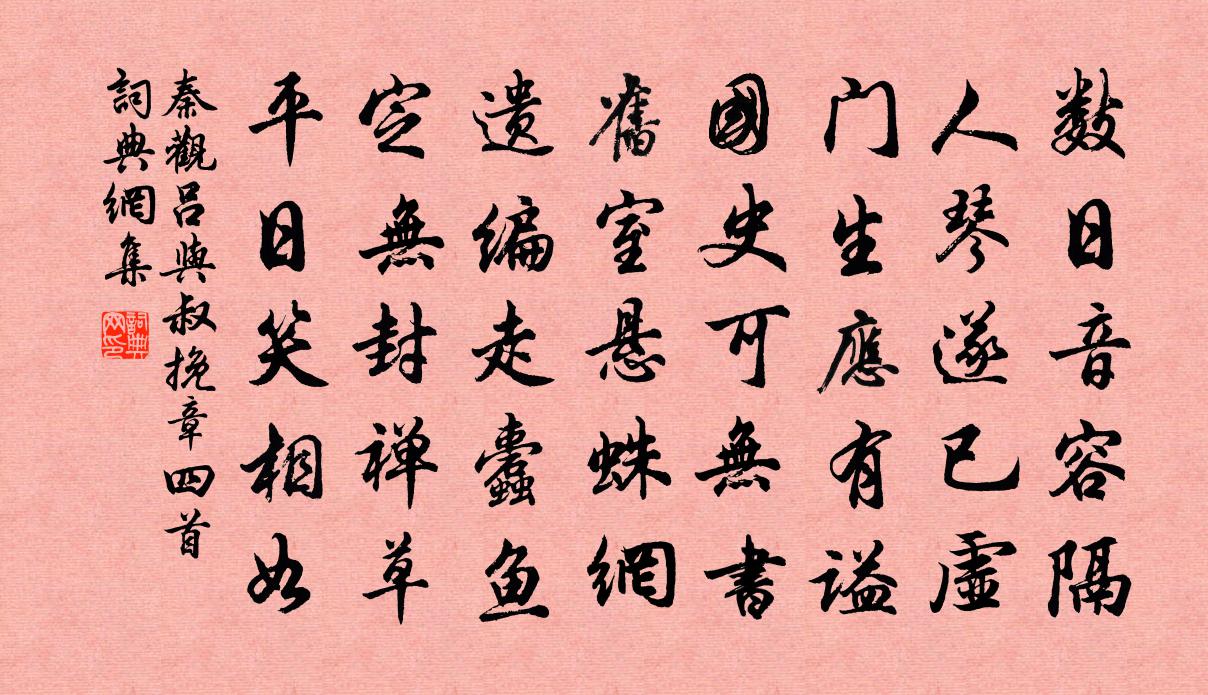 数日音容隔
人琴遂已虚
门生應有谥
國史可無書
舊室悬蛛網
遗编走蠹魚
定無封禅草
平日笑相如
秦觀吕與叔挽章四首
詞典網集
詞典
网印